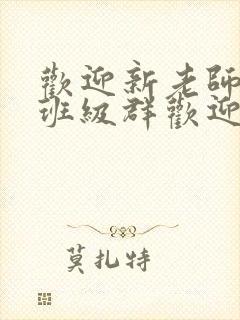 歡迎新老師
班級群歡迎
莫扎特